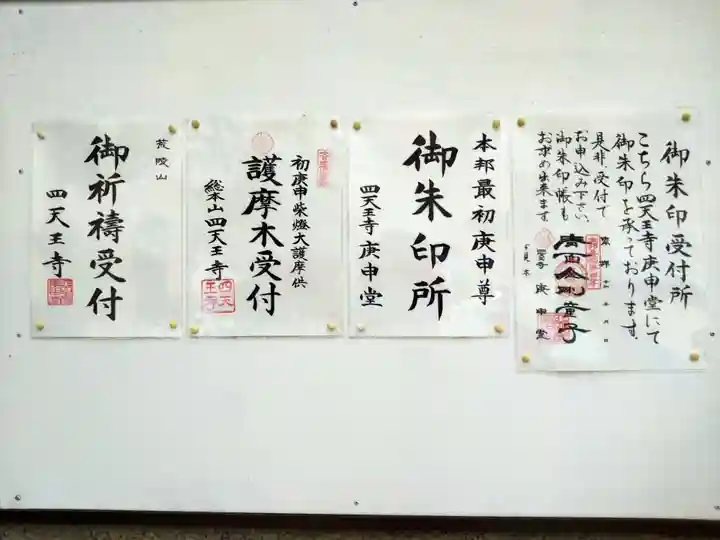 御朱印受付所
こちら四天王寺庚申堂にて
御朱印を承ております。
是非、受付て
お申込み下さい。
御朱印帳も
お求め出来ます
青面金剛童子
庚申堂
見本
本邦最初庚申尊
御朱印所
四天王寺庚申堂
初庚申柴燈大護摩供
護摩木受付
総本山四天王寺
四天王寺
荒陵山
御祈禱受付
四天王寺